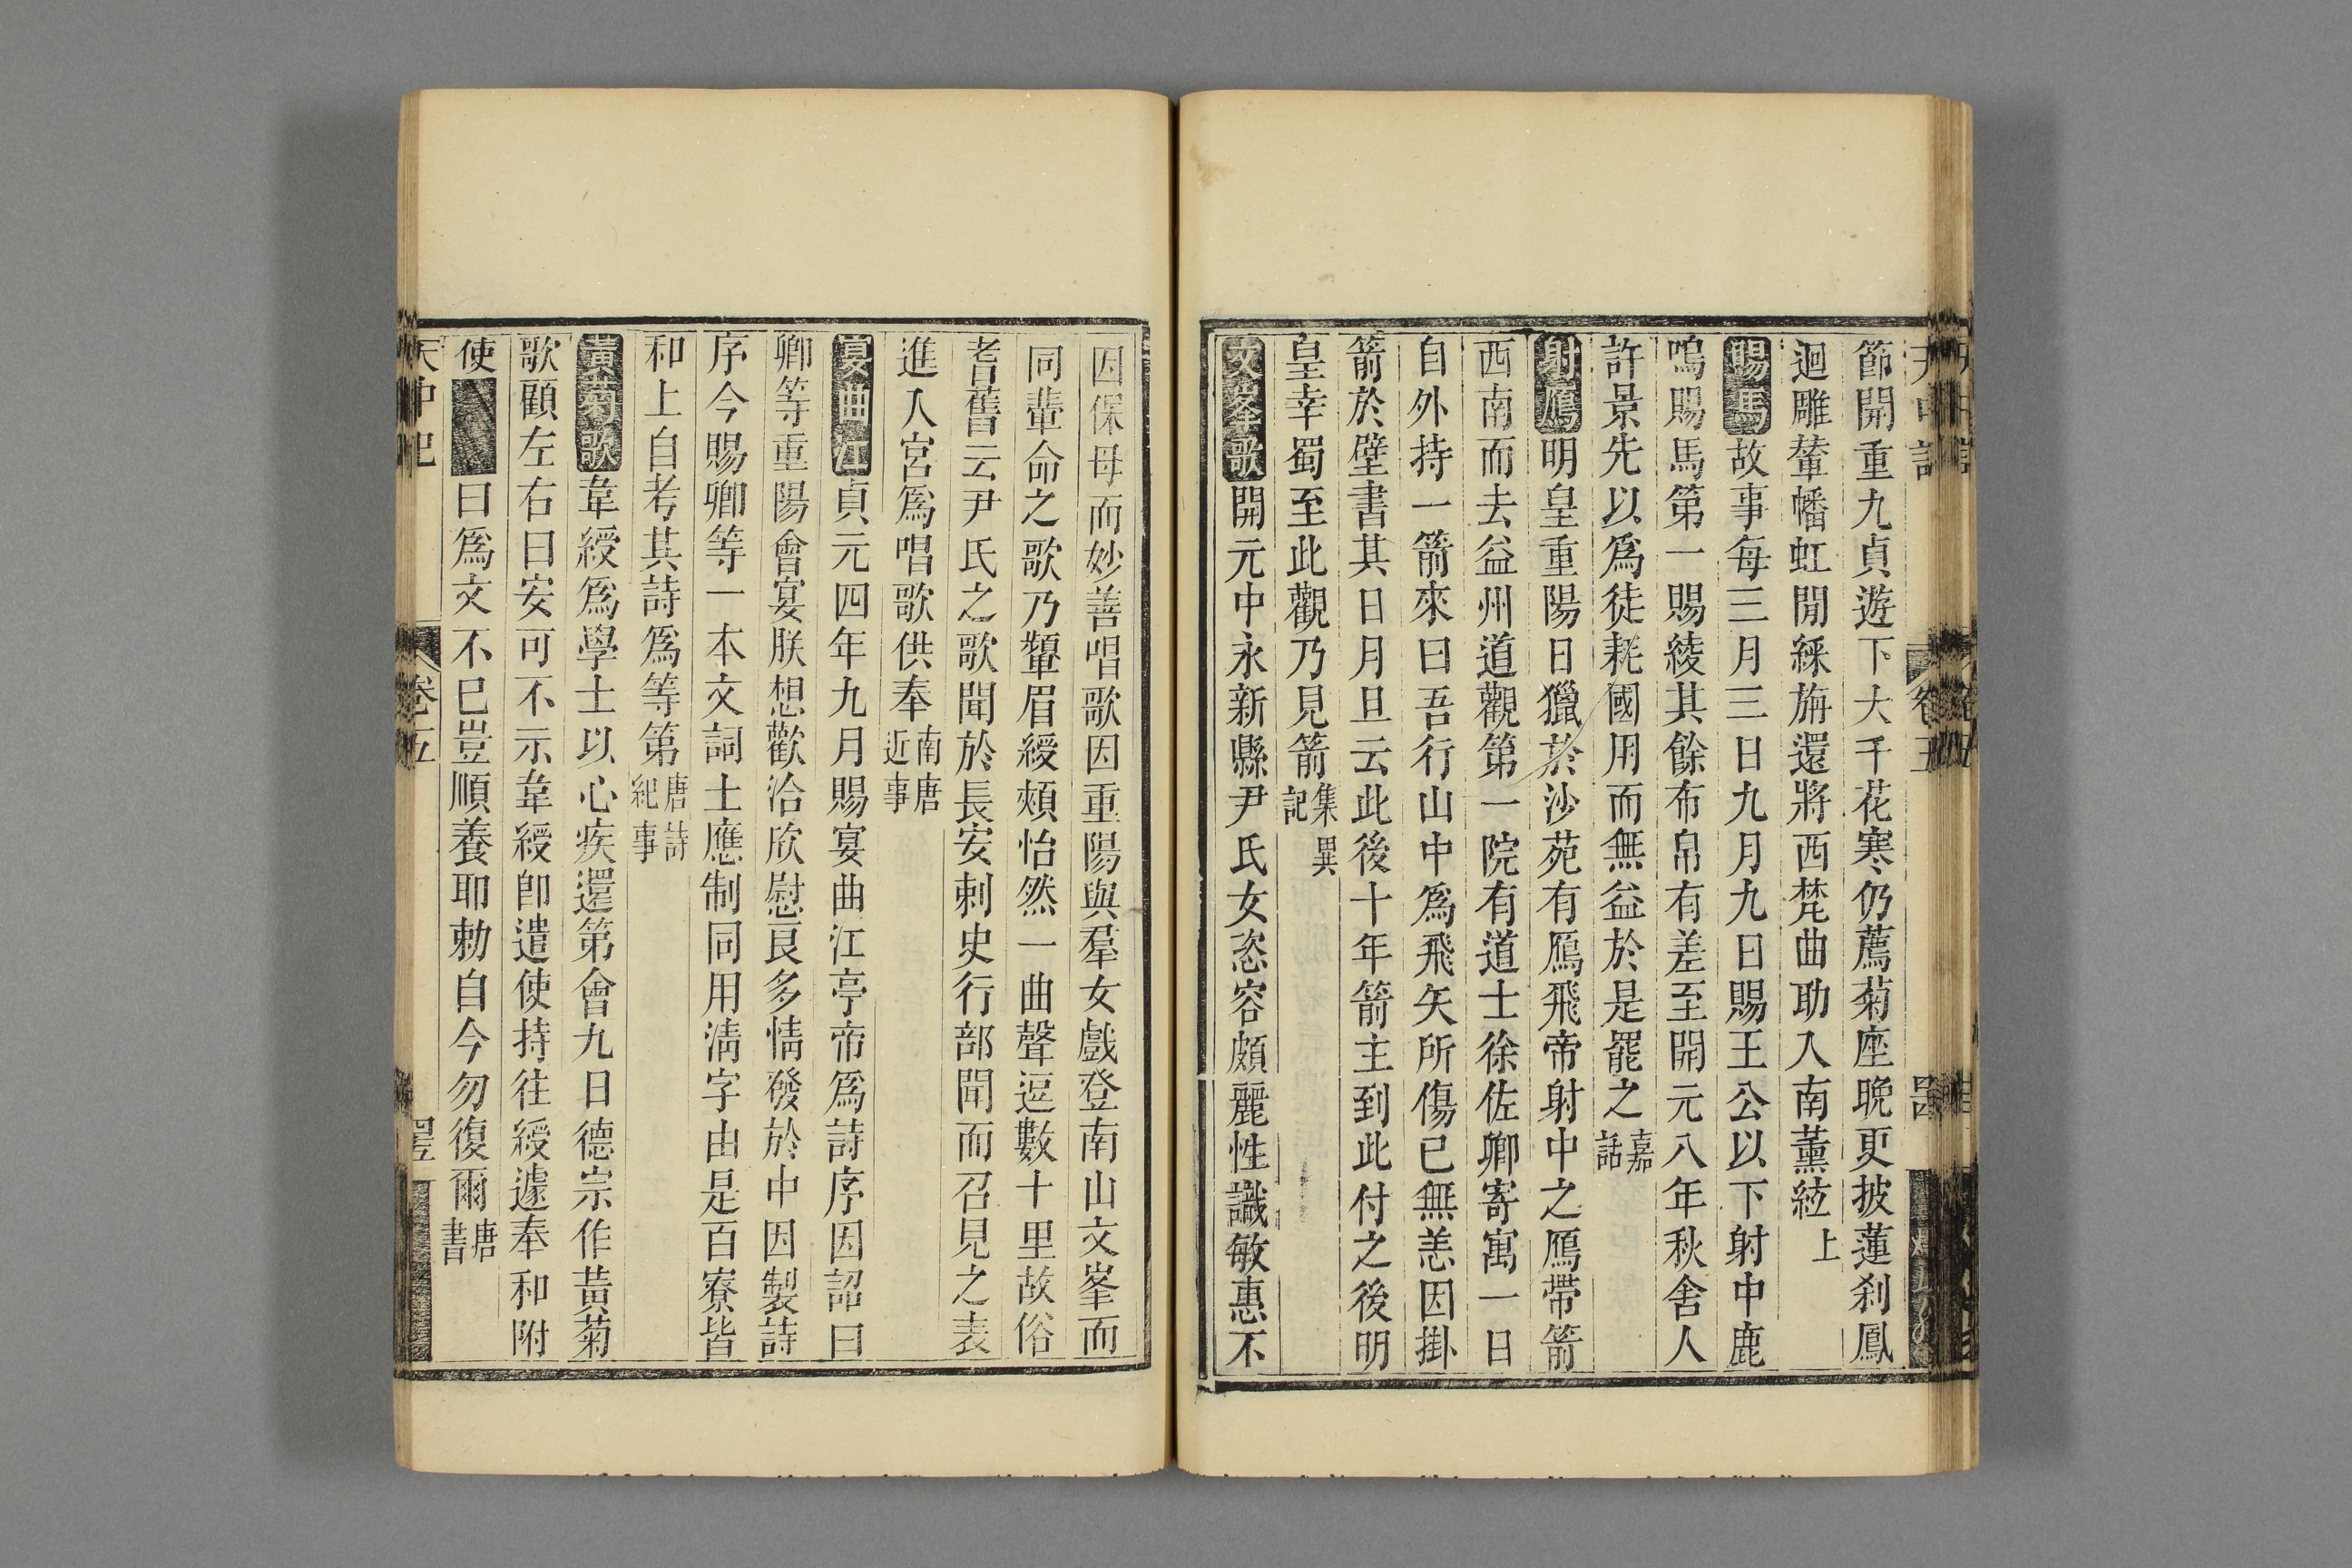 天中記 卷五
節開重九貞遊下大千花寒仍薦菊座晚更披蓮刹鳳
迴雕輦幡虹閒綵旃還將西梵曲助入南薰絃上
賜馬故事每三月三日九月九日賜王公以下射中鹿
鳴賜馬第一賜綾其餘布帛有差至開元八年秋舍人
許景先以爲徒耗國用而無益於是罷之嘉話
射鴈明皇重陽日獵於沙苑有鴈飛帝射中之鴈帶箭
西南而去益州道觀第一院有道士徐佐卿寄寓一日
自外持一箭來曰吾行山中爲飛矢所傷已無恙因掛
箭於壁書其日月且云此後十年箭主到此付之後明
皇幸蜀至此觀乃見箭集異記
文峯歌開元中永新縣尹氏女恣容頗麗性識敏惠不
因保母而妙善唱歌因重陽與羣女戲登南山文峯而
同輩命之歌乃顰眉緩頰怡然一曲聲逗數十里故俗
耆舊云尹氏之歌聞於長安刺史行部聞而召見之表
進入宮爲唱歌供奉南唐近事
宴曲江貞元四年九月賜宴曲江亭帝爲詩序因詔曰
卿等重陽會宴朕想歡洽欣慰良多情發於中因製詩
序今賜卿等一本文詞士應制同用淸字由是百寮皆
和上自考其詩爲等第唐詩紀事
黃菊歌韋綬爲學士以心疾還第會九日德宗作黃菊
歌顧左右曰安可不示韋綬卽遣使持往綬遽奉和附
使 曰爲文不已豈順養耶勅自今勿復爾唐書
天中記 卷五